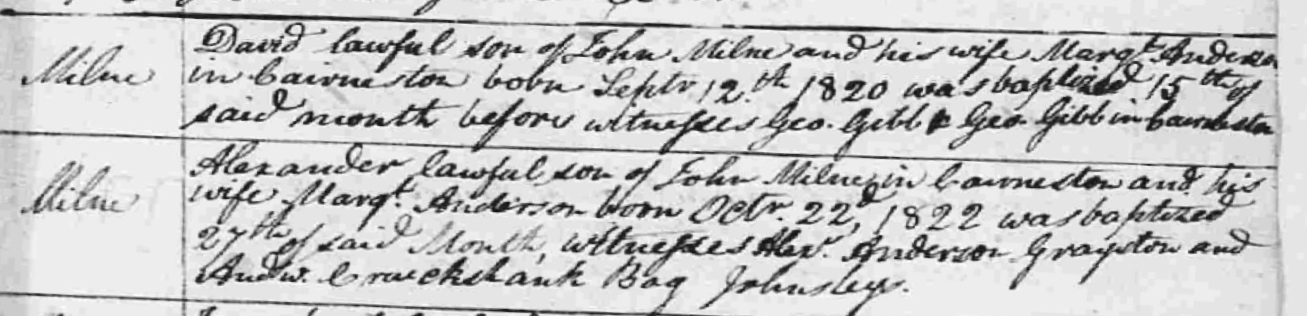 Milne
David lawful son of John Milne and his wife Margt. Anderson
in Cairneston born Septr. 12.th 1820 was baptized 15th of
said month before witnesses Geo. Gibb & Geo. Gibb in Cairneston
Milne
Alexander lawful son of John Milne in Cairneston and his
wife Margt. Anderson born Octr. 22d, 1822 was baptized
27th of said Month, witnesses Alexr. Anderson Grayston and
Andw. Cruickshank Bog Johnsleys.